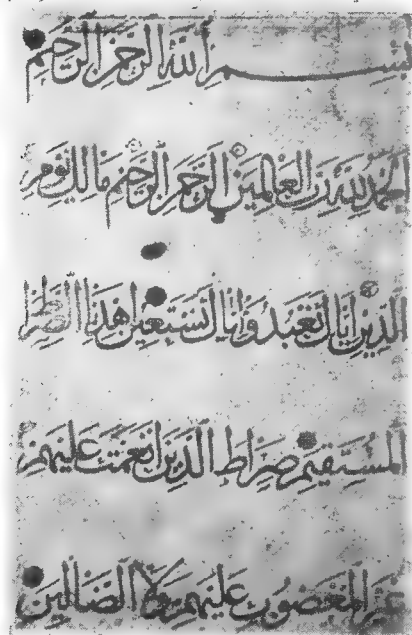 بسم الله الرحمن الرحيم
الحمد لله رب العالمين الرحمن الرحيم مالك يوم
الدين اياك نعبد واياك نستعين اهدنا الصرا
المستقيم صراط الذين انعمت عليهم
غير المغضوب عليهم ولا الضالين